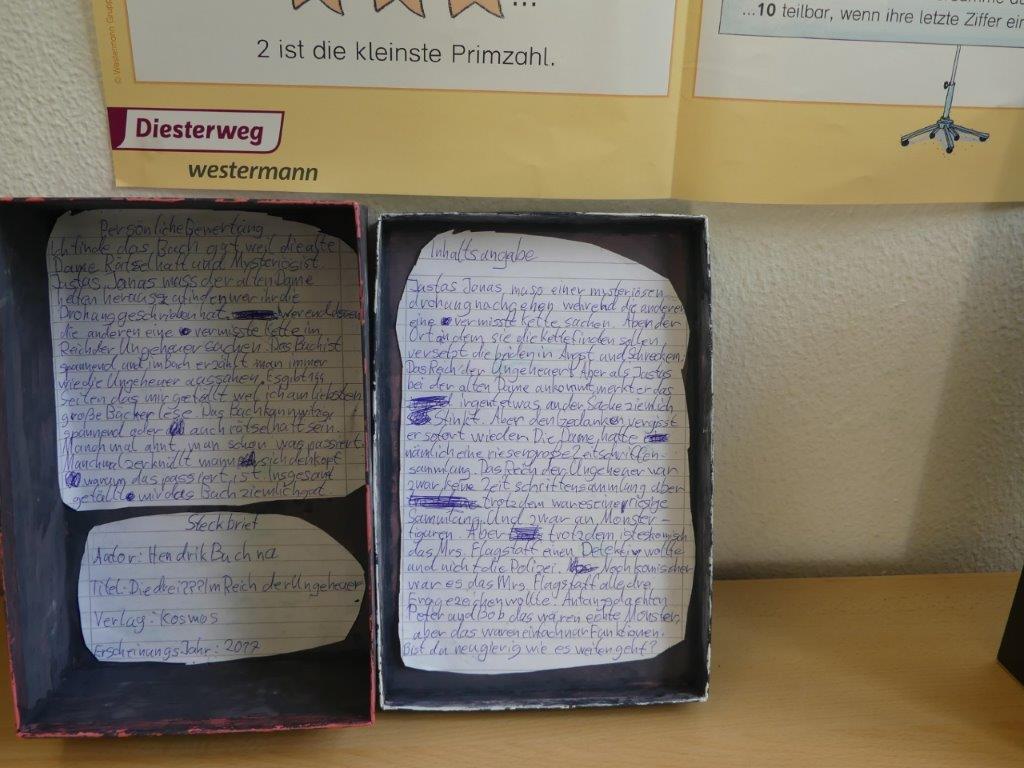 2 ist die kleinste Primzahl.
...10 teilbar, wenn ihre letzte Ziffer ein
Diesterweg
westermann
Persönliche Bewertung
Ich finde das Buch gut weil die alte
Dame Rätselhaft und Mysteriös ist.
Justus Jonas muss der alten Dame
helfen herauszufinden wer ihr die
Drohung geschrieben hat.
die anderen eine vermisste kette im
Reich der Ungeheuer suchen. Das Buch ist
spannend und im buch erzählt man immer
wie die Ungeheuer aussahen. Es gibt
Seiten das mir gefällt weil ich am liebsten
große Bücher lese. Das Buch kann witzig
spannend oder auch rätselhaft sein.
Manchmal ahnt man schon was passiert
Manchmal zerknüllt man sich den kopf
warum das passiert ist. Insgesamt
gefällt mir das Buch ziemlich gut.
Steckbrief
Autor: Hendrik Buchna
Titel: Die drei??? Im Reich der Ungeheuer
Verlag: Kosmos
Erscheinungs Jahr: 2017
Inhaltsangabe
Justus Jonas, muss einer mysteriösen
drohung nachgehen während die anderen
eine vermisste kette suchen. Aber der
Ort an dem sie die kette finden sollen
versetzt die beiden in Angst und schrecken:
Das Reich der Ungeheuer! Aber als Justus
bei der alten Dame ankommt merkt er das
irgent etwas an der Sache ziemlich
Stinkt. Aber den Gedanken vergisst
er sofort wieder. Die Dame hatte
nämlich eine riesengroße Zeitschriften-
sammlung. Das Reich der Ungeheuer war
zwar keine Zeitschriftensammlung aber
trotzdem war es eine riesige
Sammlung. Und zwar an Monster-
figuren. Aber trotzdem ist es komisch
das Mrs. Flagstaff einen Detektiv wollte
und nicht die Polizei. Noch komischer
war es das Mrs. Flagstaff alle drei
Fragezeichen wollte. Anfangs dachten
Peter und Bob das wären echte Monster,
aber das waren einfach nur Funkionen.
Bist du neugierig wie es weiter geht?